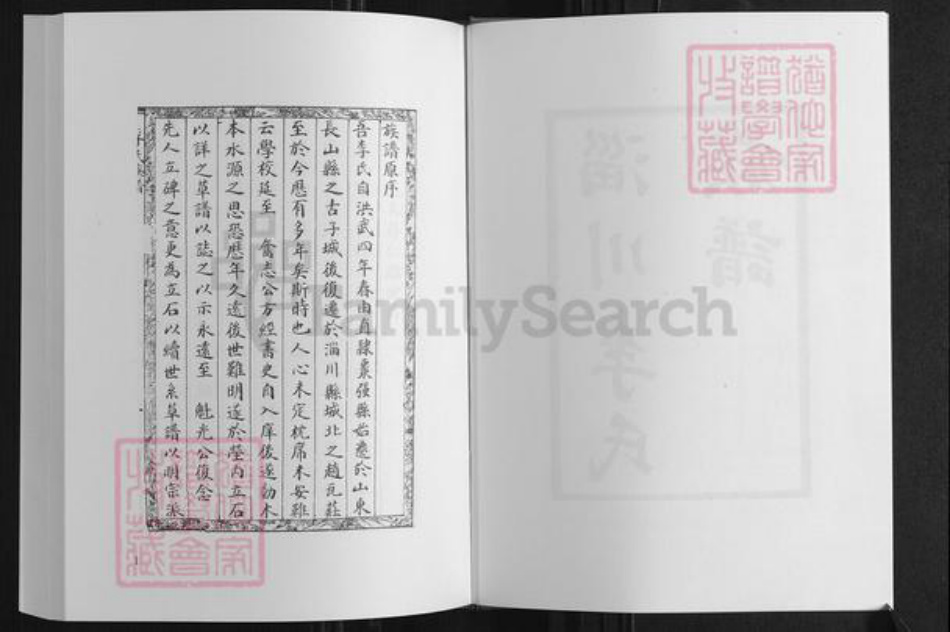 族譜原序
吾李氏自洪武四年春由直隸棗强縣始遷於山東
長山縣之古子城後復遷於淄川縣城北之趙瓦莊
至於今歷有多年矣斯時也人心未定枕席未安雖
云學校延至 奮志公方經書史自入庠後遂動木
本水源之思恐歷年久遠後世難明遂於塋內立石
以詳之草譜以誌之以示永遠至 魁光公復念
先人立碑之意更為立石以續世系草譜以明宗派
淄川李氏
譜
FamilySearch